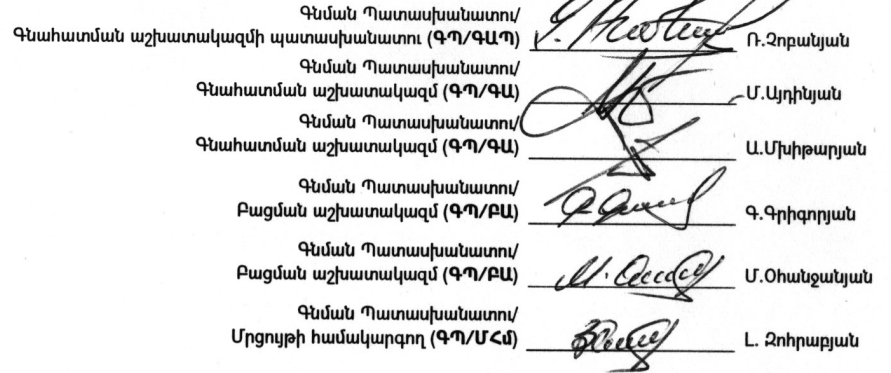 Գնման Պատասխանատու/
Գնահատման աշխատակազմի պատասխանատու (ԳՊ/ԳԱՊ) Ռ.Չոբանյան
Գնման Պատասխանատու/
Գնահատման աշխատակազմ (ԳՊ/ԳԱ) Մ.Այդինյան
Գնման Պատասխանատու/
Գնահատման աշխատակազմ (ԳՊ/ԳԱ) Ա.Մխիթարյան
Գնման Պատասխանատու/
Բացման աշխատակազմ (ԳՊ/ԲԱ) Գ.Գրիգորյան
Գնման Պատասխանատու/
Բացման աշխատակազմ (ԳՊ/ԲԱ) Մ.Օհանջանյան
Գնման Պատասխանատու/
Մրցույթի համակարգող (ԳՊ/ՄՀմ) Լ. Զոհրաբյան